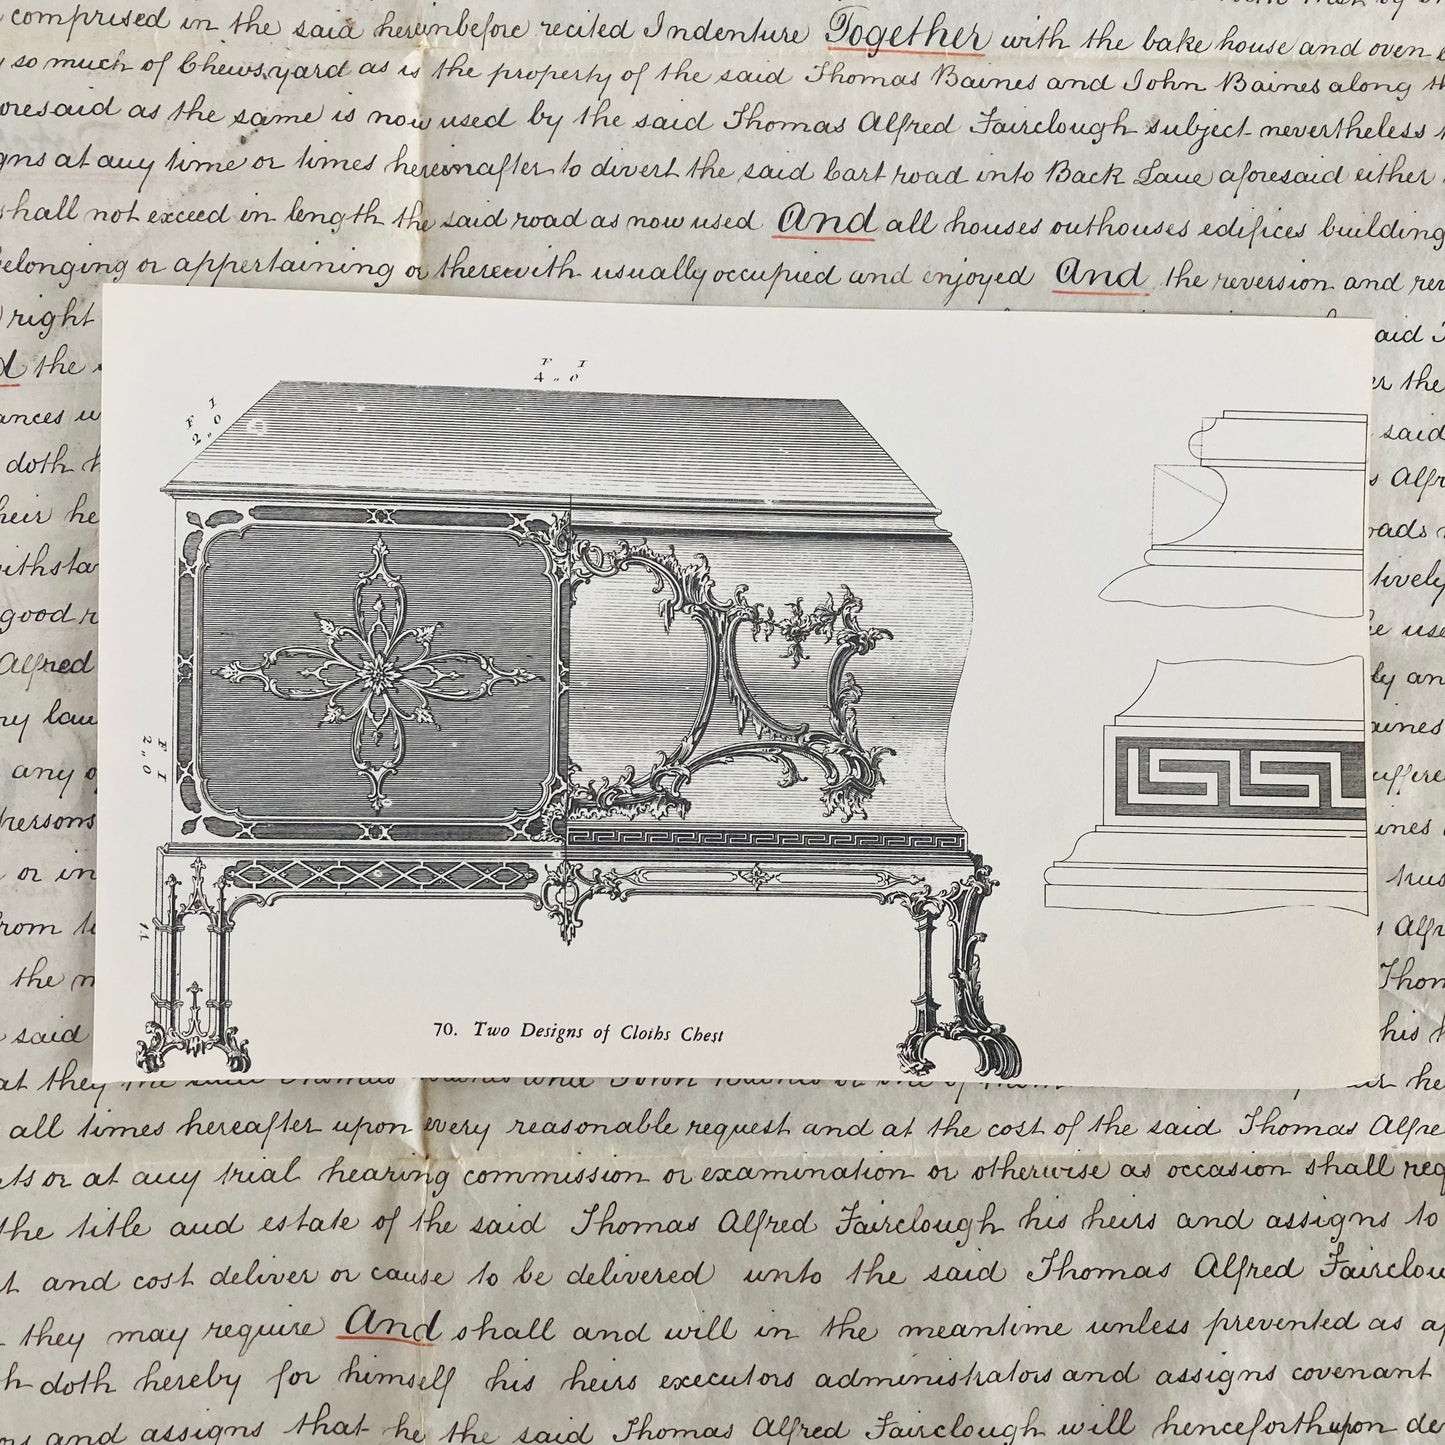 comprised in the said hereinbefore recited Indenture Together with the bake house and oven
so much of Chews yard as is the property of the said Thomas Baines and John Baines along
oresaid as the same is now used by the said Thomas Alfred Fairclough subject nevertheless
gns at any time or times hereinafter to divert the said Cart road into Back Lane aforesaid either
shall not exceed in length the said road as now used And all houses outhouses edifices building
elonging or appertaining or therewith usually occupied and enjoyed And the reversion and rev
right
aid
the
the
ances
said
doth
Alfr
heir he
oads
withsta
tively
good r
use
Alfred
ly an
ny law
aines
any o
uffere
persons
ines
or in
trus
from t
Alfr
the m
Thom
said
his
F I
4 " 0
F I
2 " 0
F I
2 " 0
11
70. Two Designs of Cloths Chest
at they the said Thomas Baines and John Baines or one of them
all times hereafter upon every reasonable request and at the cost of the said Thomas Alfre
ts or at any trial hearing commission or examination or otherwise as occasion shall req
the title and estate of the said Thomas Alfred Fairclough his heirs and assigns to
t and cost deliver or cause to be delivered unto the said Thomas Alfred Fairclou
they may require And shall and will in the meantime unless prevented as a
h doth hereby for himself his heirs executors administrators and assigns covenant
ors and assigns that he the said Thomas Alfred Fairclough will henceforth upon de